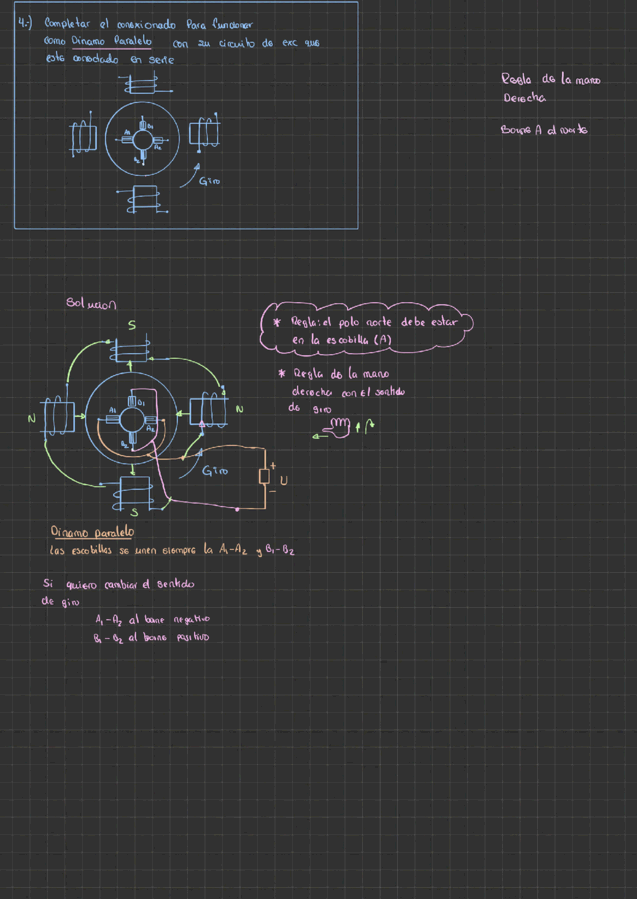 4.-) Completar el conexionado Para funcionar
como Dinamo Paralelo con su circuito de exc que
este conectado en serie
B1
A1
A2
B2
Giro
Regla de la mano
Derecha
Borne A al norte
Solucion
S
N
B1
A1
A2
B2
N
Giro
S
+
U
-
* Regla: el polo norte debe estar
en la escobilla (A)
* Regla de la mano
derecha con El sentido
de giro
Dinamo paralelo
Las escobillas se unen siempre la A1-A2 y B1-B2
Si quiero cambiar el sentido
de giro
A1-A2 al borne negativo
B1-B2 al borne positivo